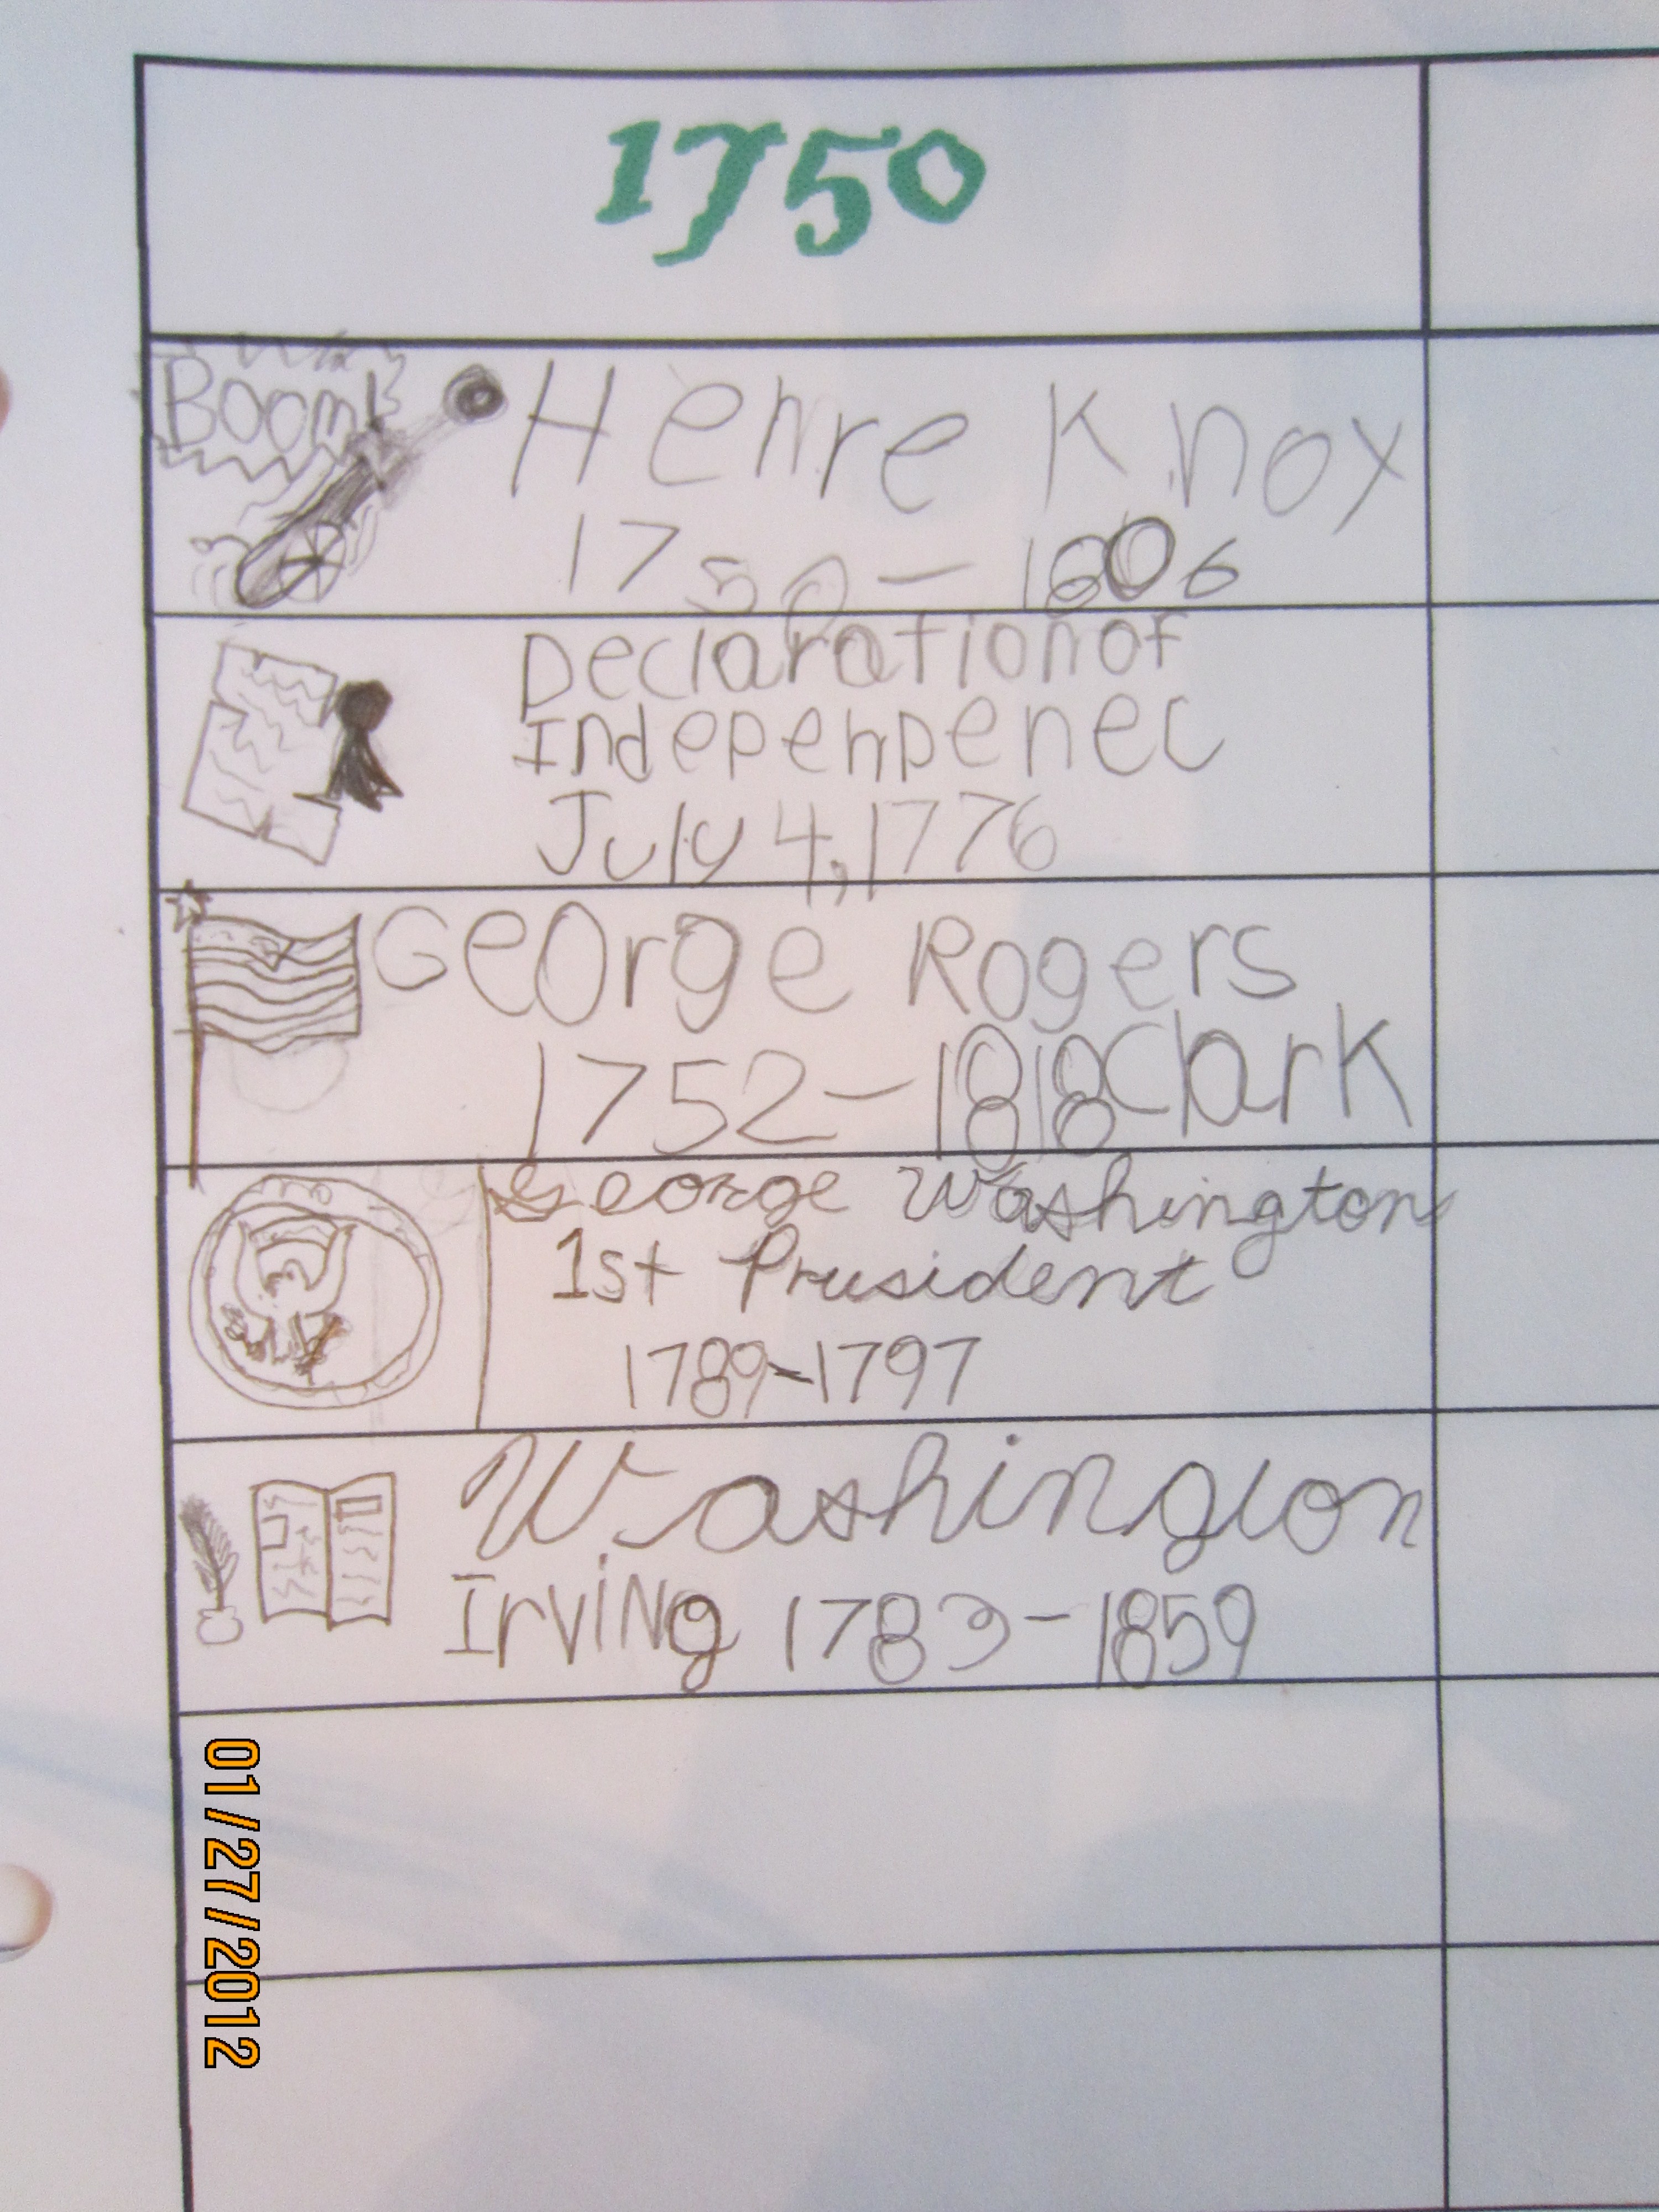 1750
BOOM!
Henre Knox
1750-1806
Declaration of
Indepenpenec
July 4, 1776
George Rogers
1752-1818 Clark
George Washington
1st Prusident
1789-1797
Washington
Irving 1783-1859
01/27/2012